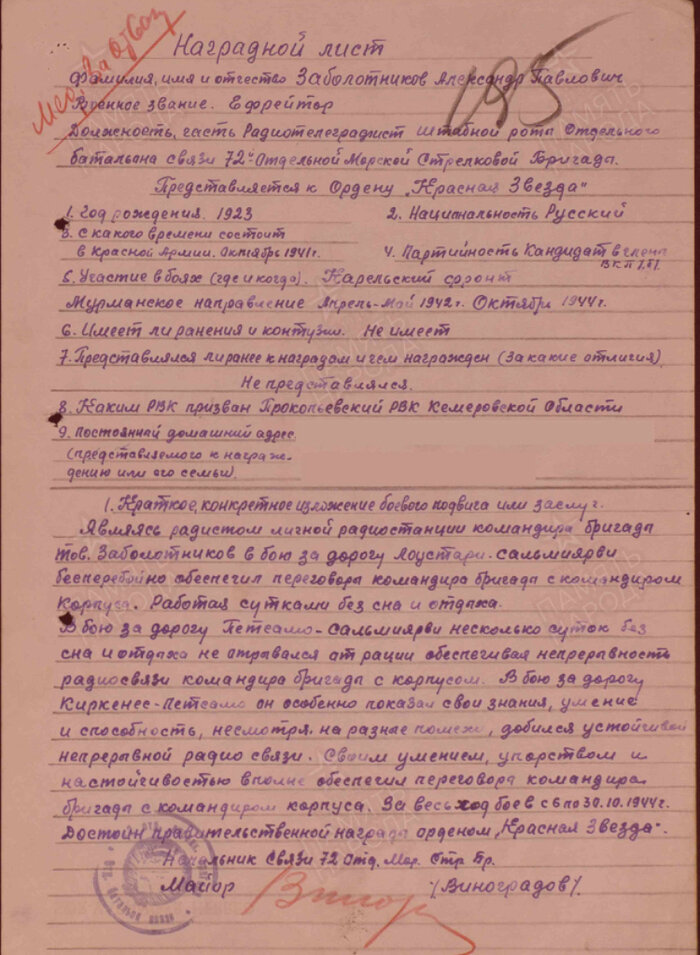 Мед. За отвагу
195
Наградной лист
Фамилия, имя и отчество Заболотников Александр Павлович
Военное звание. Ефрейтор
Должность, часть Радиотелеграфист штабной роты Отдельного
батальона связи 72й Отдельной Морской Стрелковой Бригады.
Представляется к Ордену „Красная Звезда"
1. Год рождения. 1923
2. Национальность Русский
3. с какого времени состоит
в Красной Армии. Октябрь 1941г.
4. Партийность Кандидат в члены
ВКП/б/.
5. Участие в боях (где и когда). Карельский фронт
Мурманское направление Апрель-Май 1942г. Октябрь 1944г.
6. Имеет ли ранения и контузии. Не имеет
7. Представлялся ли ранее к наградам и чем награжден (за какие отличия).
Не представлялся.
8. Каким РВК призван Прокопьевский РВК Кемеровской Области
9. постоянный домашний адрес
(представляемого к награж-
дению или его семьи).
1. Краткое, конкретное изложение боевого подвига или заслуг.
Являясь радистом личной радиостанции командира бригады
тов. Заболотников в бою за дорогу Лоустари-сальмиярви
бесперебойно обеспечил переговоры командира бригады с командиром
Корпуса. Работая сутками без сна и отдыха.
В бою за дорогу Петсамо-Сальмиярви несколько суток без
сна и отдыха не отрывался от рации обеспечивая непрерывность
радиосвязи командира бригады с корпусом. В бою за дорогу
Киркенес-Петсамо он особенно показал свои знания, умение
и способность, несмотря на разные помехи, добился устойчивой
непрерывной радио связи. Своим умением, упорством и
настойчивостью вполне обеспечил переговоры командира
бригады с командиром корпуса. За весь ход боев с 6 по 30.10.1944г.
Достоин правительственной награды орденом „Красная Звезда".
Начальник Связи 72 Отд. Мор. Стр Бр.
Майор /Виноградов/.